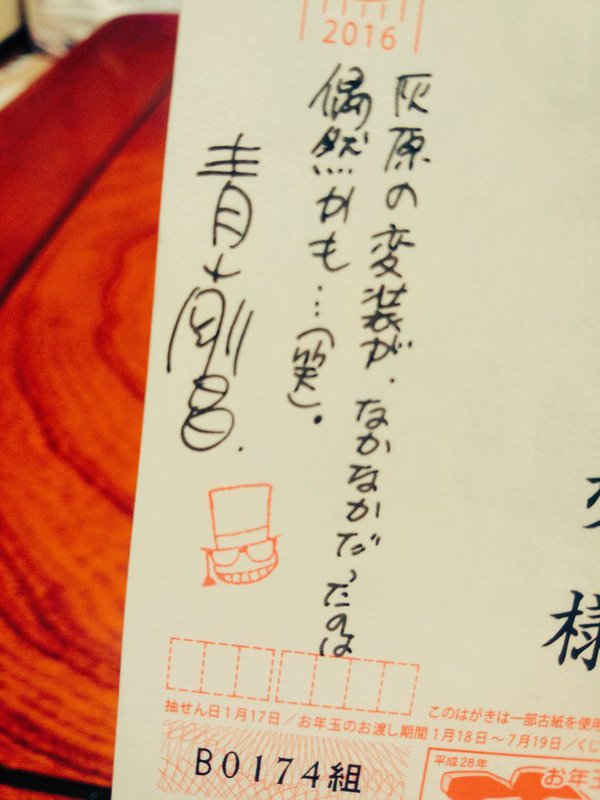 2016
灰原の変装が、なかなかだったのは
偶然かも…(笑)。
青山剛昌.
様
抽せん日1月17日/お年玉のお渡し期間1月18日〜7月19日/くじ
このはがきは一部古紙を使用
B0174組
平成28年
お年玉